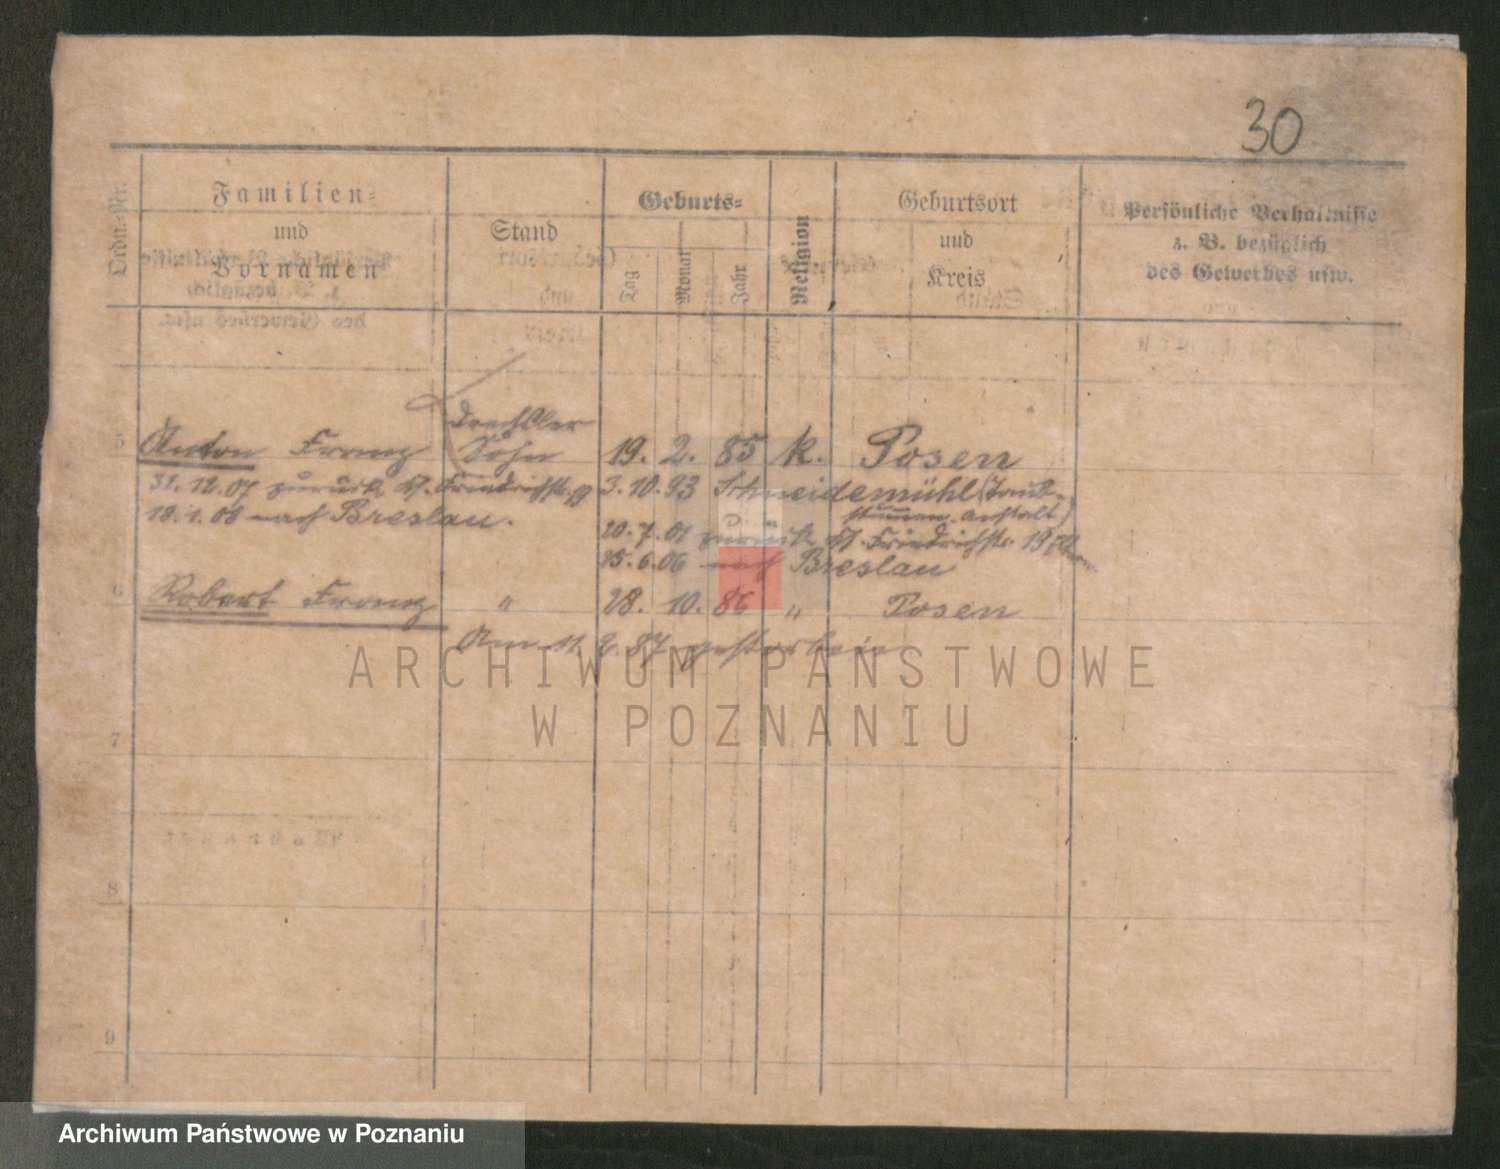 30
Ordn.-Nr.
Familien-
und
Vornamen
Stand
Geburts-
Tag
Monat
Jahr
Religion
Geburtsort
und
Kreis
Persönliche Verhältnisse
z. B. bezüglich
des Gewerbes usw.
Drechsler
5 Anton Franz Sohn 19. 2. 85 k. Posen
31.12.07 zurück St. Friedrichstr. 19 3.10.93 Schneidemühl (Taub-
18.1.08 nach Breslau. stummen-Anstalt)
20.7.01 zurück St. Friedrichstr. 19
15.6.06 nach Breslau
6 Robert Franz " 28. 10. 86 " Posen
Am 11. 2. 87 gestorben
7
8
9
ARCHIWUM PAŃSTWOWE
W POZNANIU
Archiwum Państwowe w Poznaniu